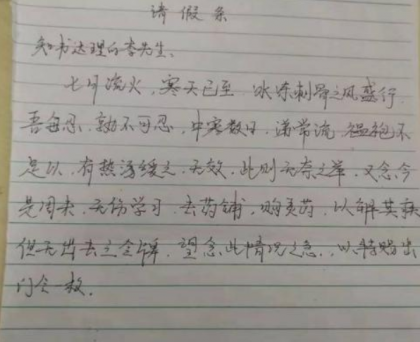 请假条
知书达理的李先生、
七月流火，寒天已至，冰冻刺骨之风盛行
吾每忍，孰不可忍，中寒数日，涕常流，缊袍不
足以，有热汤缓之，无效，此则无奈之举，又念今
是周末，无伤学习，去药铺，购灵药，以解其
但无出去之令牌，望念此情况之急，以特赐出
门令一枚.